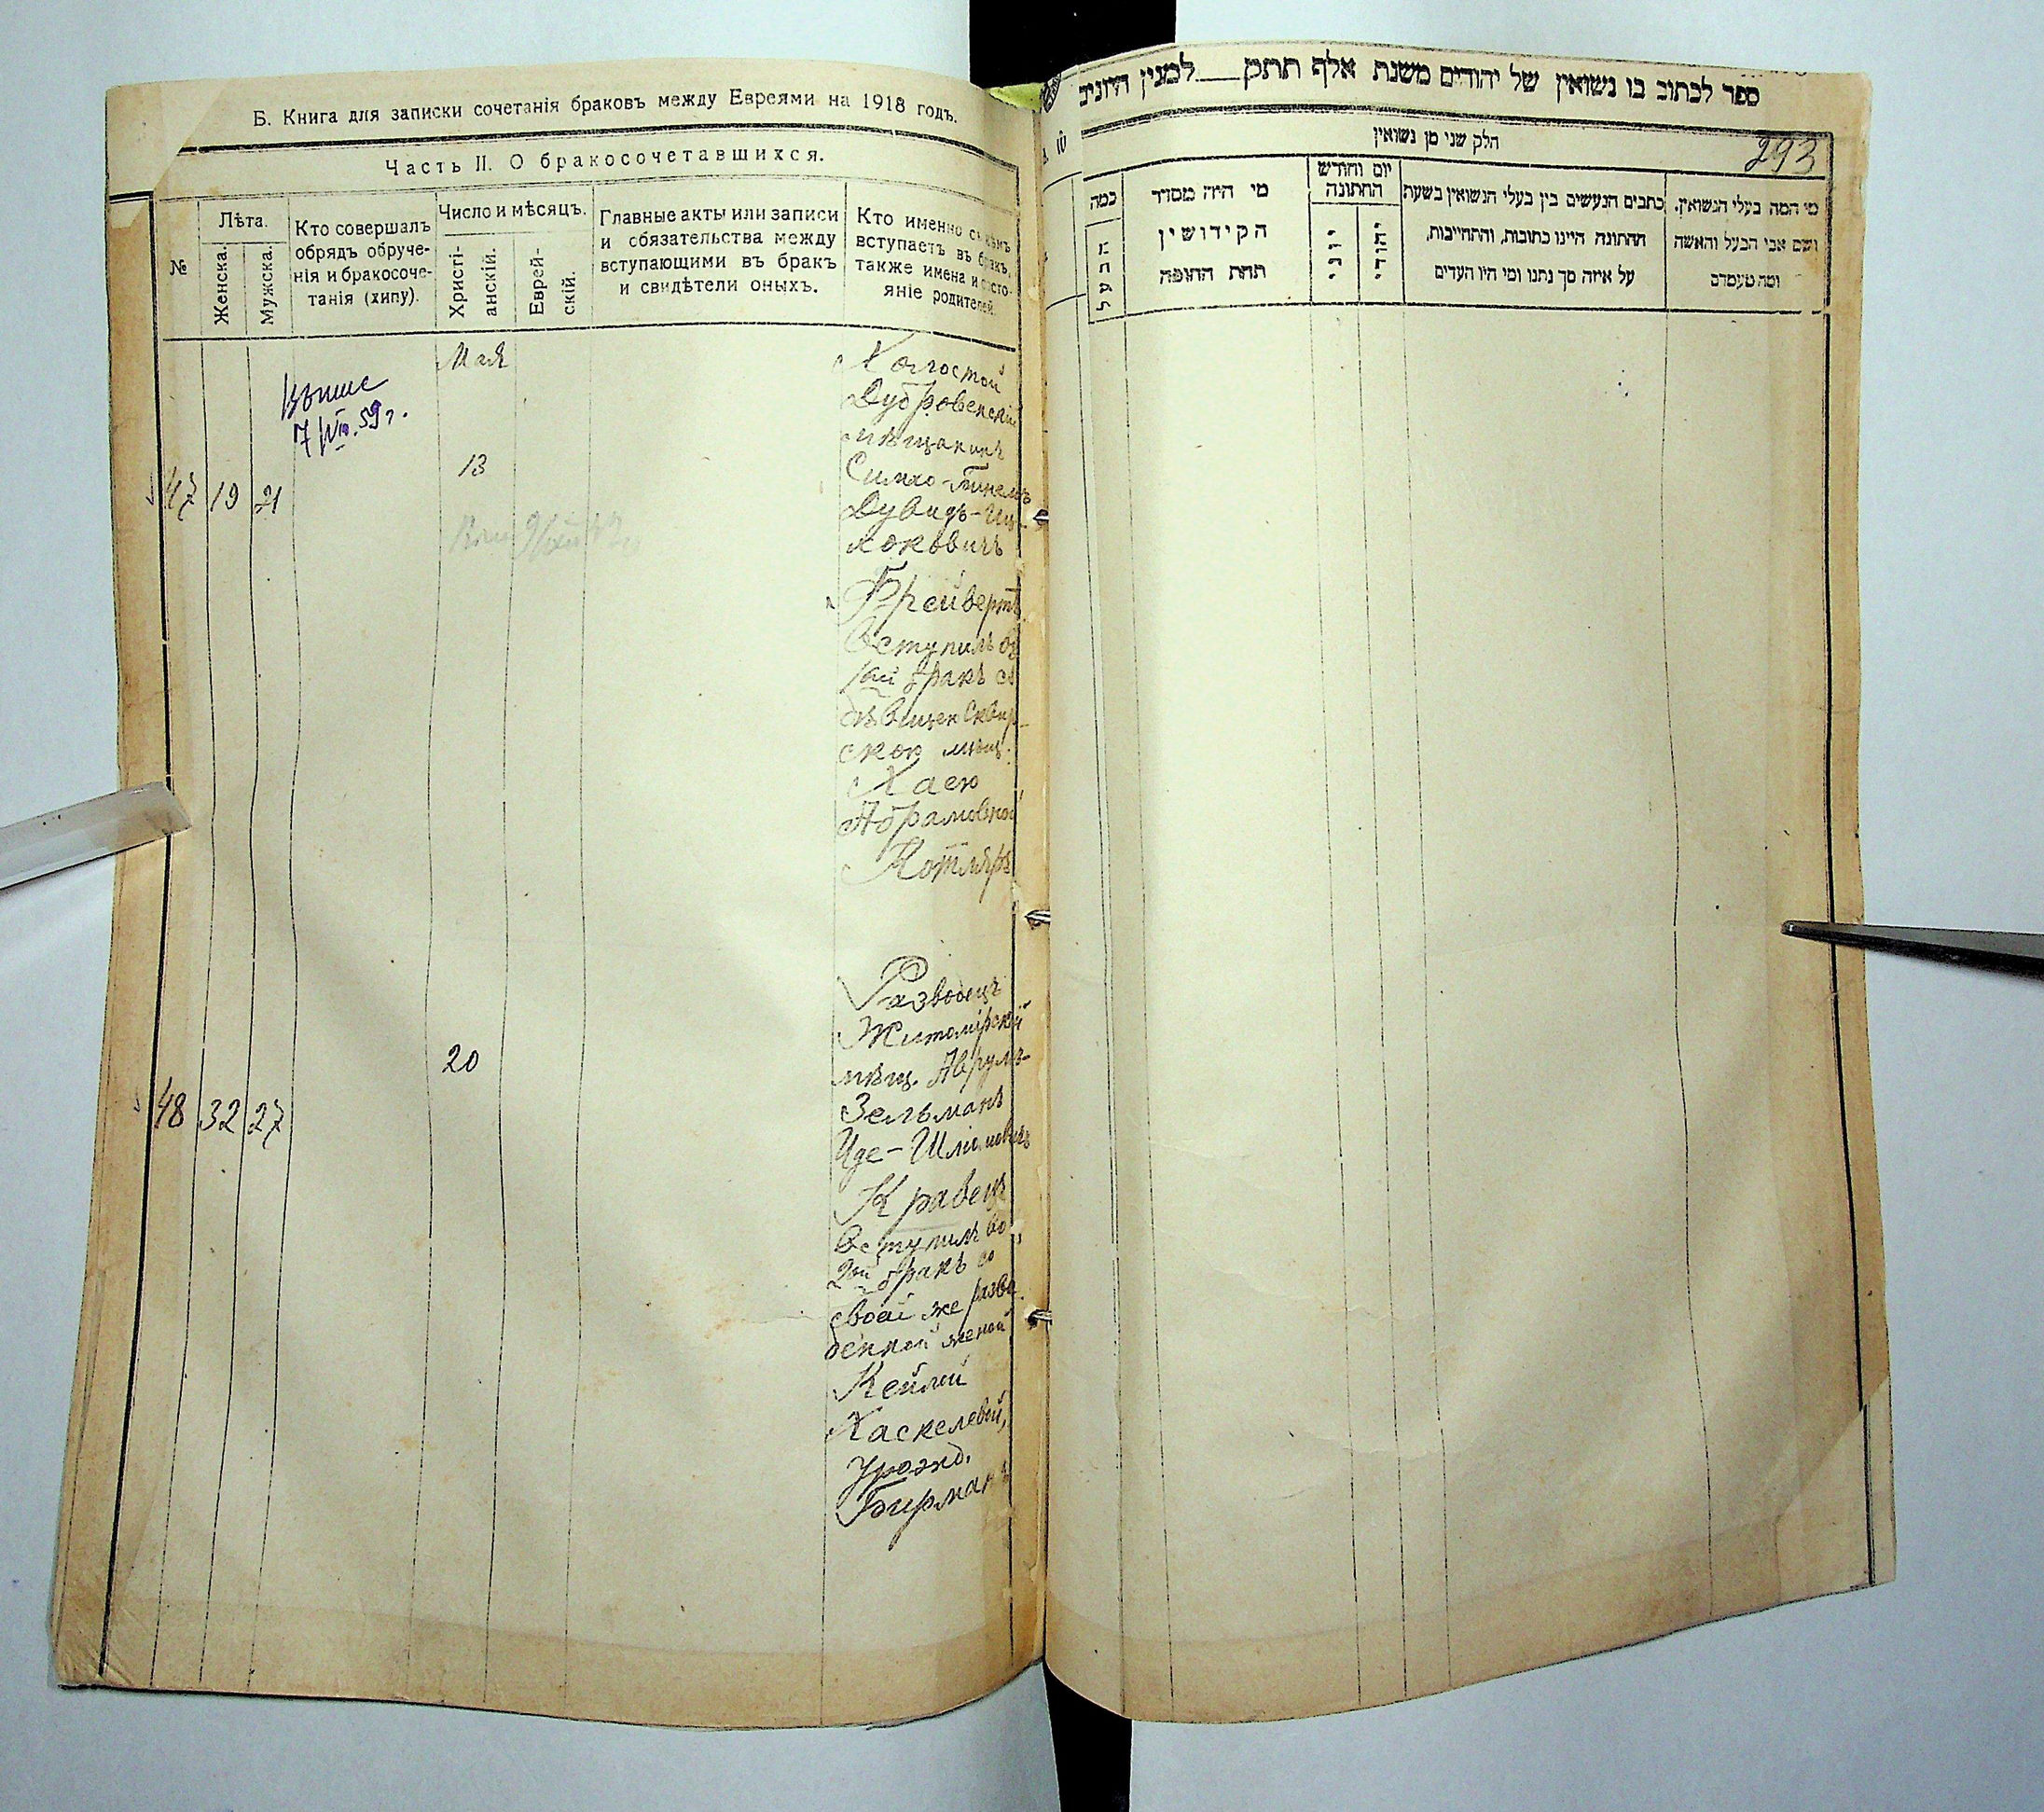 Б. Книга для записки сочетанія браковъ между Евреями на 1918 годъ.
Часть II. О бракосочетавшихся.
№
Лѣта.
Женска.
Мужска.
Кто совершалъ
обрядъ обруче-
нія и бракосоче-
танія (хипу).
Число и мѣсяцъ.
Христі-
анскій.
Еврей-
скій.
Главные акты или записи
и обязательства между
вступающими въ бракъ
и свидѣтели оныхъ.
Кто именно съ кѣмъ
вступаетъ въ бракъ,
также имена и состо-
яніе родителей.
Мая
7/VIII.59 г.
47 19 21
13
Холостой
Дубровенскій
мѣщанинъ
Симхо-
Дувидъ-Иц-
хоковичъ
Брейвертъ
Вступилъ въ
1ый бракъ съ
дѣвицею Сквир-
скою мѣщ.
Хаею
Абрамовной
Котляръ
48 32 27
20
Разводецъ
Житомірскій
мѣщ. Аврумъ-
Зельманъ
Иде-Шліомовичъ
Кравецъ
Вступилъ во
2ой бракъ со
своей же разве-
денной женой
Кейлей
Хаскелевой,
урожд.
Бирманъ
ספר לכתוב בו נשואין של יהודים משנת אלף תתק___למנין היוניב
חלק שני מן נשואין
293
כמה
הבעל
מי היה מסדר
הקידושין
תחת החופה
יום וחודש
החתונה
יוני
יהודי
כתבים הנעשים בין בעלי הנשואין בשעת
החתונה היינו כתובות, והתחייבות,
על איזה סך נתנו ומי היו העדים
מי המה בעלי הנשואין.
ושם אבי הבעל והאשה
ומה מעמדם